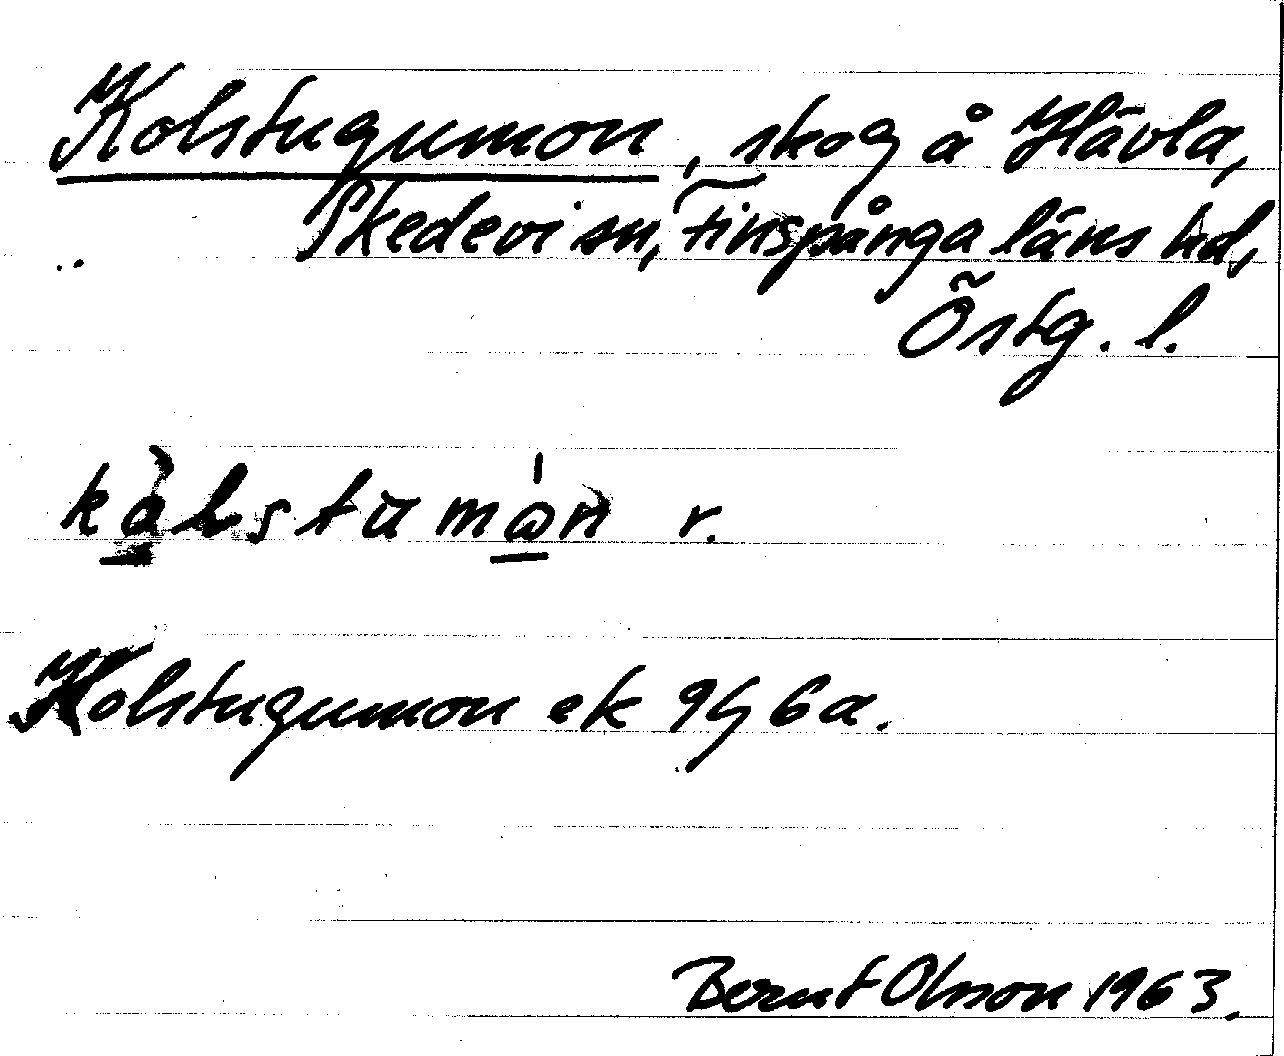 Kolstugumon, skog å Hävla,
Skedevi sn, Finspånga läns hd,
Östg. l.
kålstumån r.
Kolstugumon ek 9G 6a.
Bernt Olsson 1963.